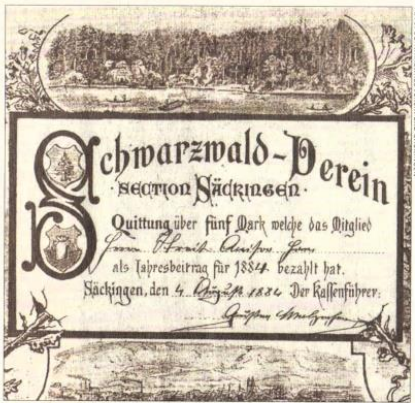 Schwarzwald-Verein
· SECTION SÄCKINGEN ·
Quittung über fünf Mark welche das Mitglied
Herrn Streit
als Jahresbeitrag für 1884 bezahlt hat.
Säckingen, den 4 August 1884 Der Kassenführer: